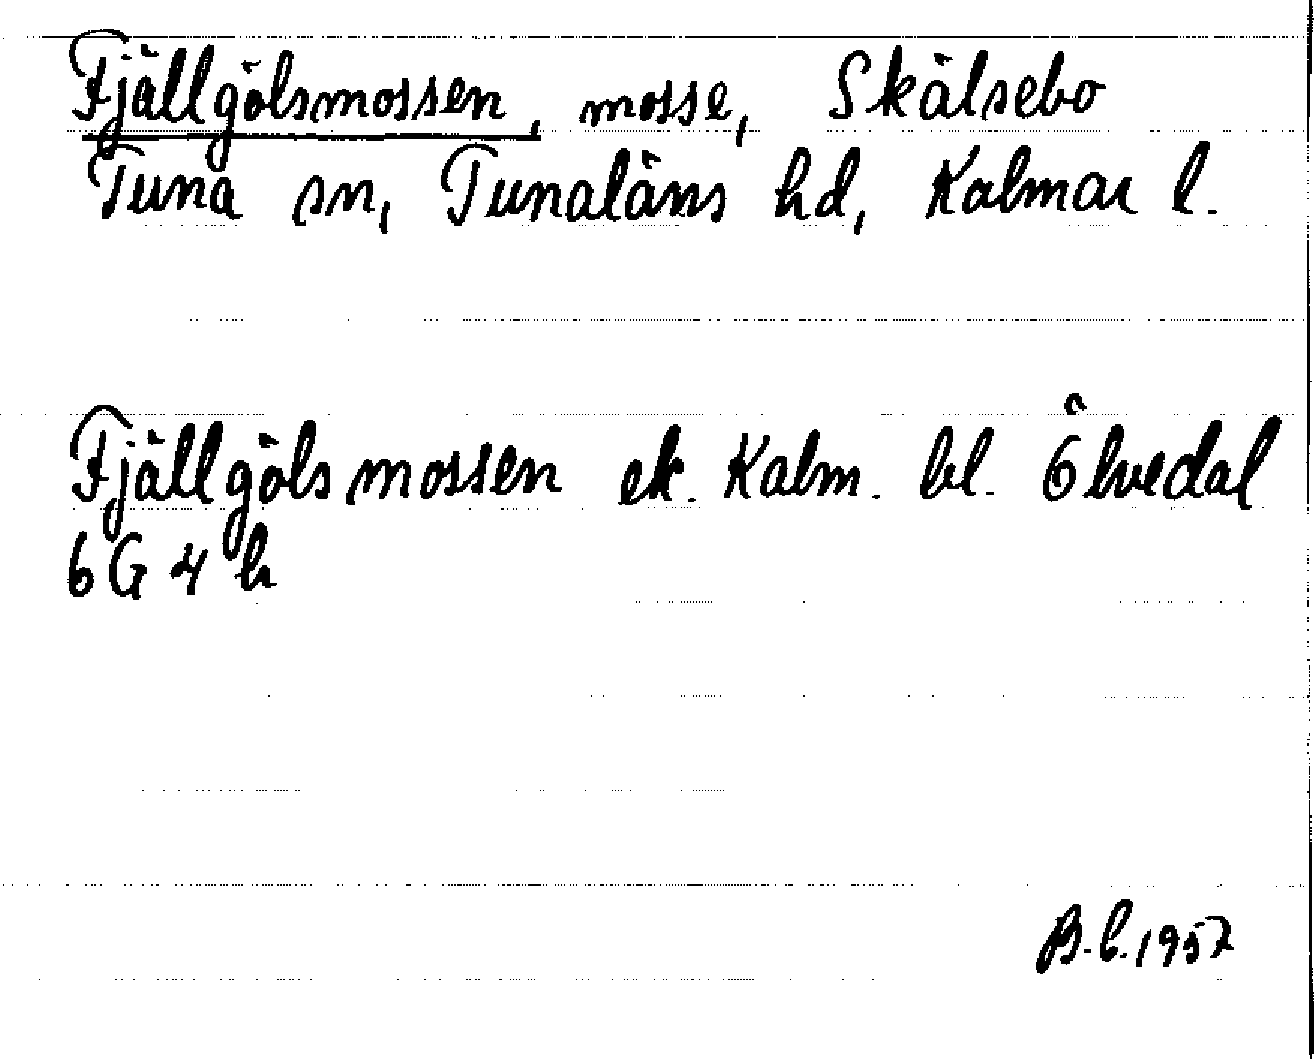 Fjällgölsmossen, mosse, Skälsebo
Tuna sn, Tunaläns hd, Kalmar l.
Fjällgölsmossen ek. Kalm. bl. Ölvedal
6 G 4 h
B.L. 1957